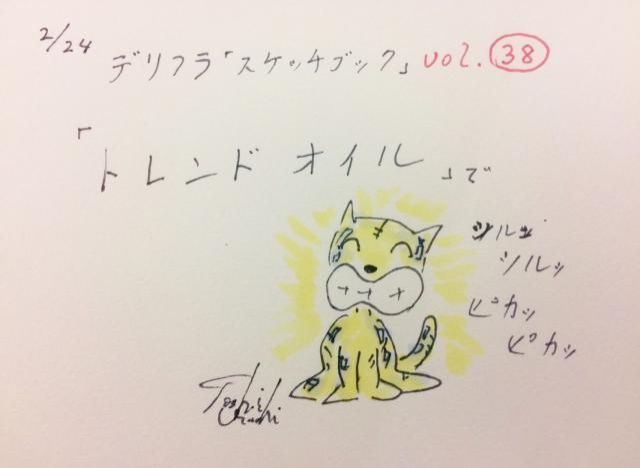 2/24
デリフラ「スケッチブック」vol. 38
「トレンド オイル」で
ツルッ
ツルッ
ピカッ
ピカッ